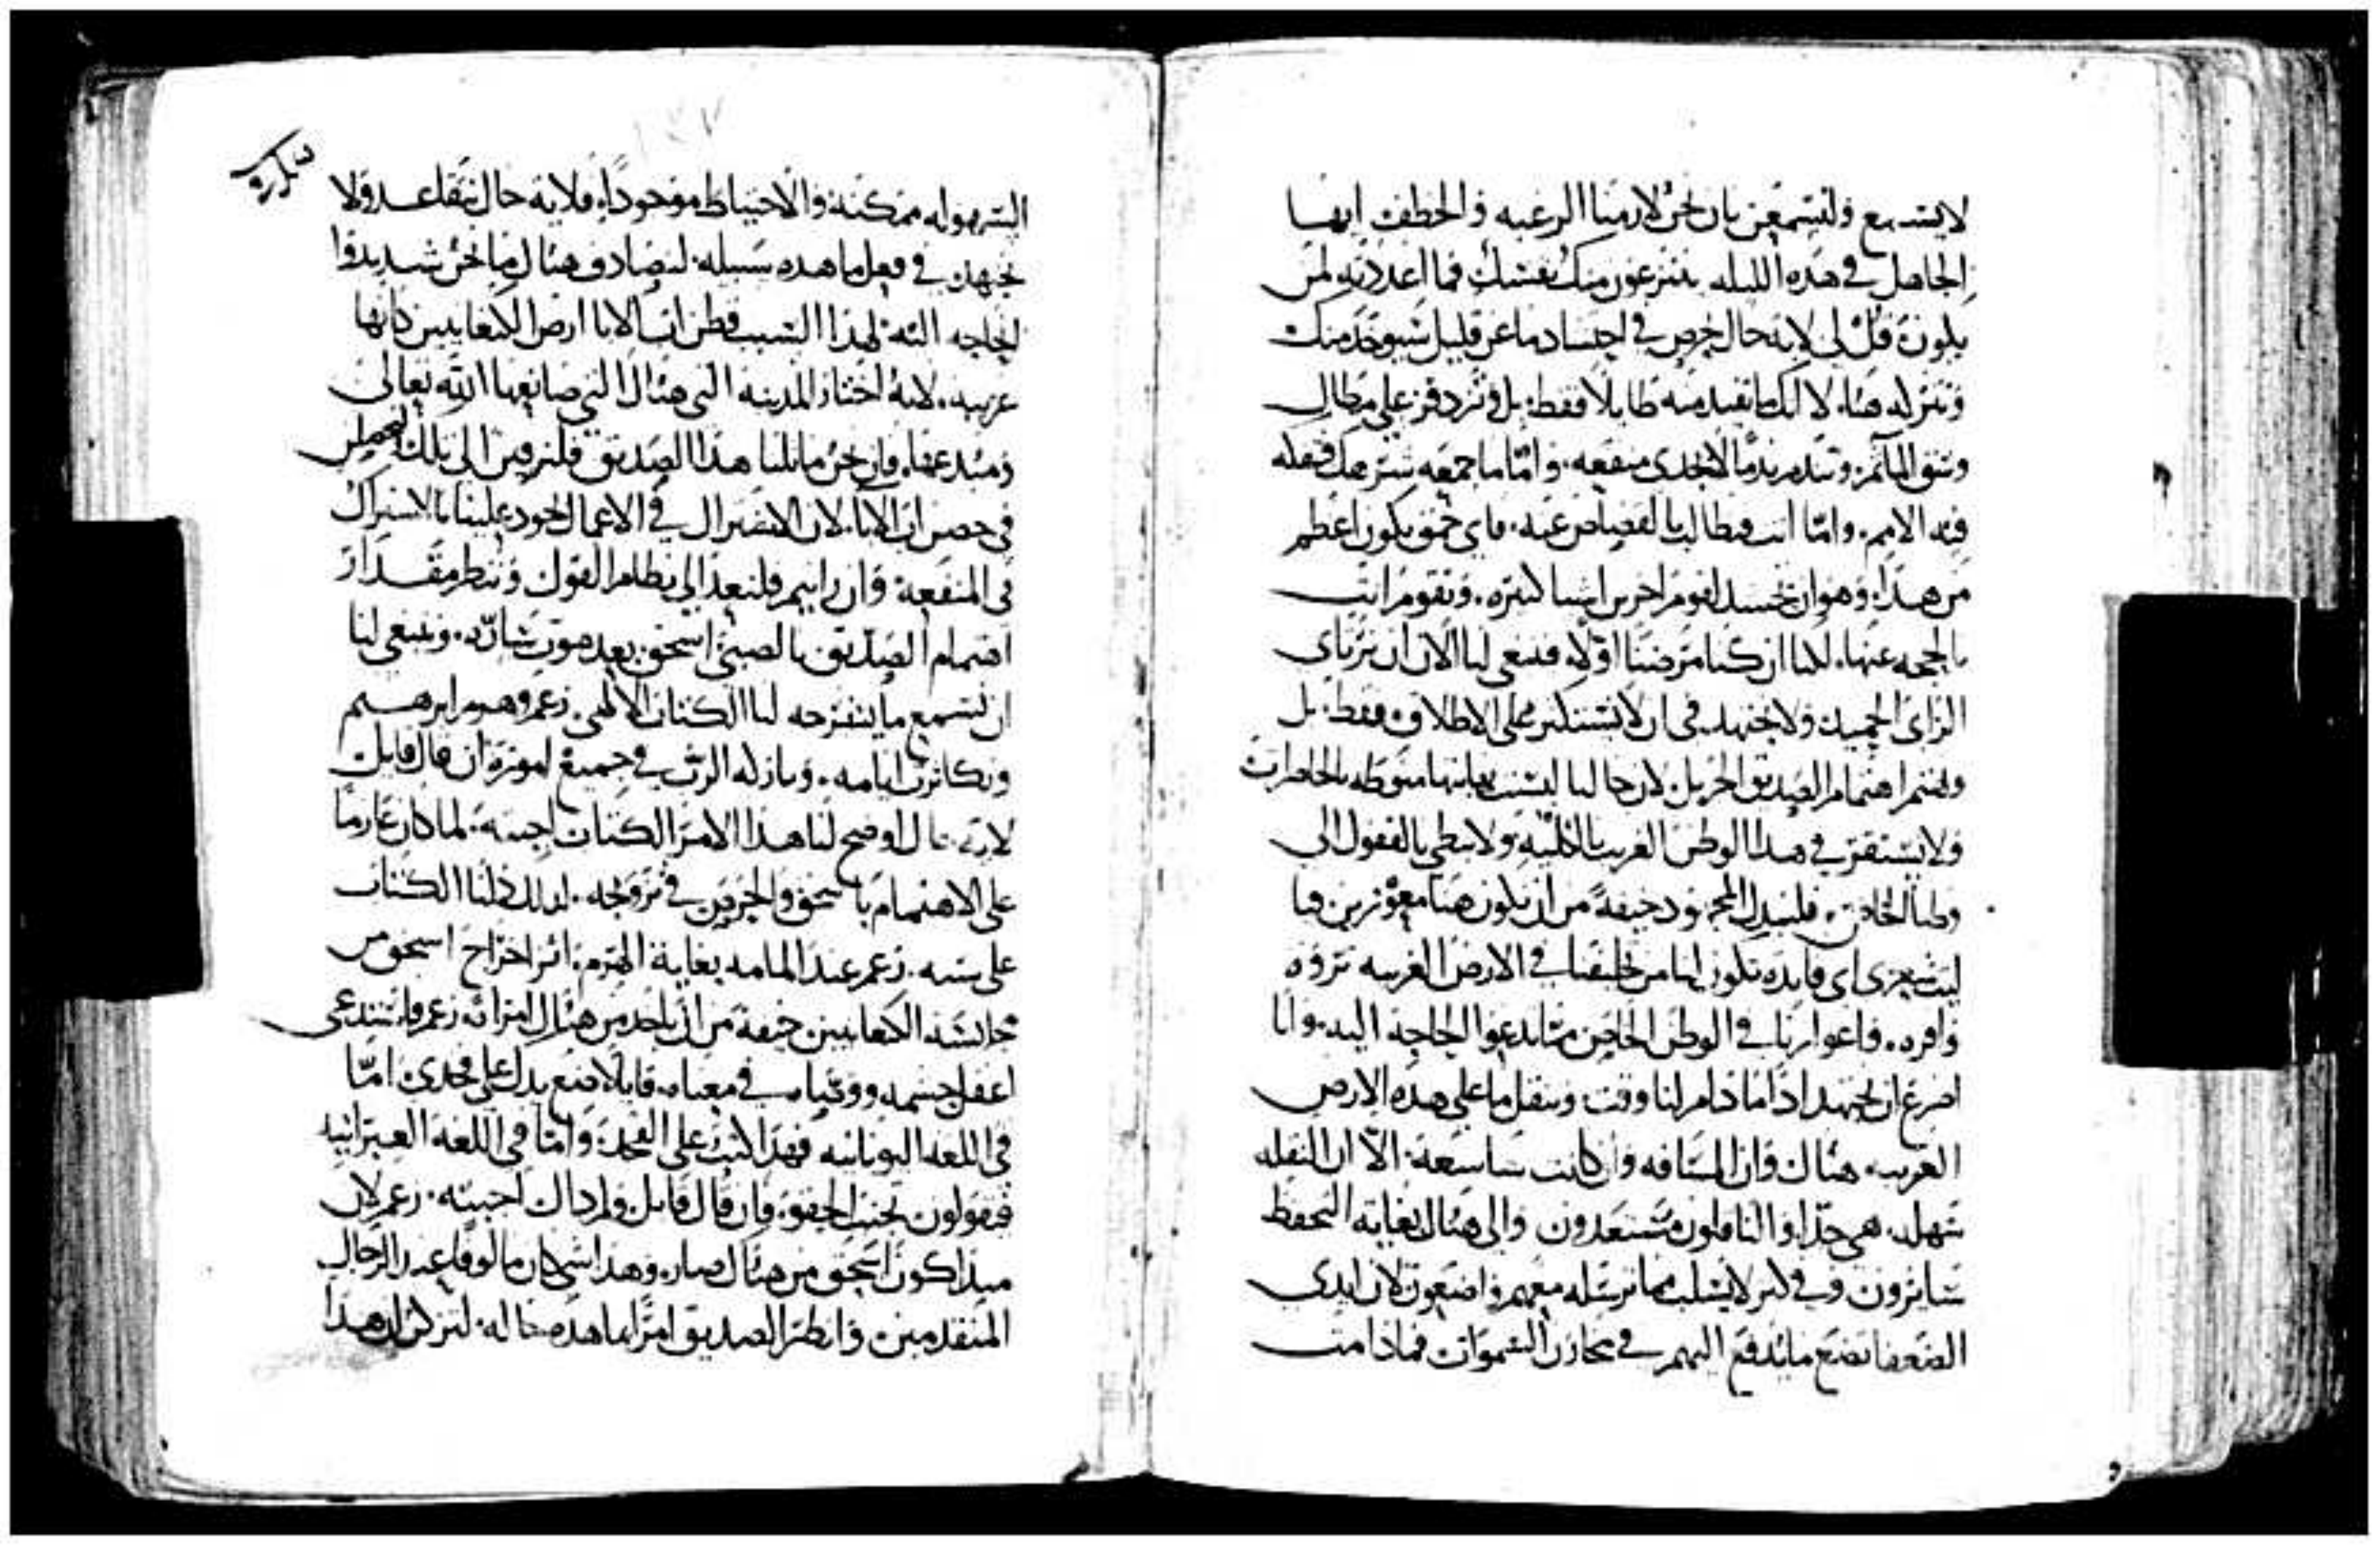 لا يشبع ولنسمعن بان نحن لازمنا الرغبه والخطف ايها
الجاهل في هذه الليله ينتزعون منك نفسك فما اعددته لمن
يكون قل لي لاية حال تحرص في احتشاد ما عن قليل سيوخذ منك
وتتركه هنا لا انك ما تفيد منه طايلا فقط بل وتزد وقر على مطال
وتنق المآثم وتندم ندما لا يجدي منفعه واما ما جمعته
فيه الامم واما انت فتطالب بالقصاص عنه فاي حمق يكون اعظم
من هذا وهو ان تحشد لقوم اخرين اشيا كثيره وتقوم انت
بالحجه عنها لكننا ان كنا مرضنا اولا فينبغي لنا الان ان نرتاي
الراي الحميد ولا نجتهد في ان لا نستكثر على الاطلاق فقط بل
ونهتم اهتمام الصديق الجزيل لان حالنا ليست بعينها منوطه بالحاضرات
ولا يستقر في هذا الوطن الغريب بالكليه ولا نبطي بالقفول الى
وطننا الخاص فلنبذل المجهود خيفةً من ان نكون هنا معوزين فيا
ليت شعري اي فايده تكون لنا من تخليفنا في الارض الغريبه ثروه
وافره واعوازنا في الوطن الخاص مما تدعوا الحاجه اليه وانا
اضرع ان نجتهد اذا ما دام لنا وقت وننقل ما على هذه الارض
الغريبه هناك وان المسافه وان كانت شاسعة الا ان النقله
سهله هي جدا والناقلون مستعدون والى هناك بغاية التحفظ
سايرون وفي لا يسلب ما نرسله معهم واضعون لان ايدي
الضعفا تضع ما تدفع اليهم في مخازن السموات فماذا من
السهوله ممكنة والاحتياط موجودا فلاية حال نتقاعد ولا
نجتهد في فعل ما هذه سبيله لنصادف هناك ما نحن شديدوا
الحاجه اليه لهذا السبب فطن اب الابا ارض الكنعانيين كانها
غريبه لانه اختار المدينه التي هناك التي صانعها الله تعالى
ومبدعها فان نحن ماثلنا هذا الصديق فلنرفين الى تلك
في حضن اب الابا لان الاشتراك في الاعمال يجود علينا بالاشتراك
في المنفعة وان رايتم فلنعد الى نظام القول وننظر مقدار
اهتمام الصديق بالصبي اسحق بعد موت سارّه وينبغي لنا
ان نسمع ما يشرحه لنا الكتاب الالهي زعم وهرم ابرهيم
وتكاثرت ايامه وبارك له الرب في جميع اموره ان قال قايل
لاية حال اوضح لنا هذا الامر الكتاب اجبته لما كان عازما
على الاهتمام باسحق والحرص في تزويجه لذلك دلنا الكتاب
على سنه زعم عند المامه بغاية الهرم اثر اخراج اسحق من
مجانسة الكنعانيين خيفة من ان ياخذ من هناك امراته زعم فاستدعى
اعقل حشمه ووصاه في معناه قايلا ضع يدك على فخذي امّا
في اللغه اليونانيه فهكذا كتب على الفخذ وامّا في اللغة العبرانيه
فيقولون تحت الحقو فان قال قايل ولم ذاك اجبته زعم لان
مبدا كون اسحق من هناك صار وهذا شي كان مالوفا عند الرجال
المتقدمين وانظر الصديق امرا ما هذه حاله لتركن ان هذا